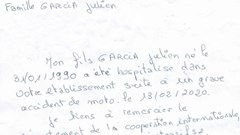 Famille GARCIA Julien
Mon fils GARCIA Julien né le
31/01/1990 a été hospitalisé dans
votre établissement suite à un grave
accident de moto. le 13/02/2020.
Je tiens à remercier le
département de la cooperation internationale